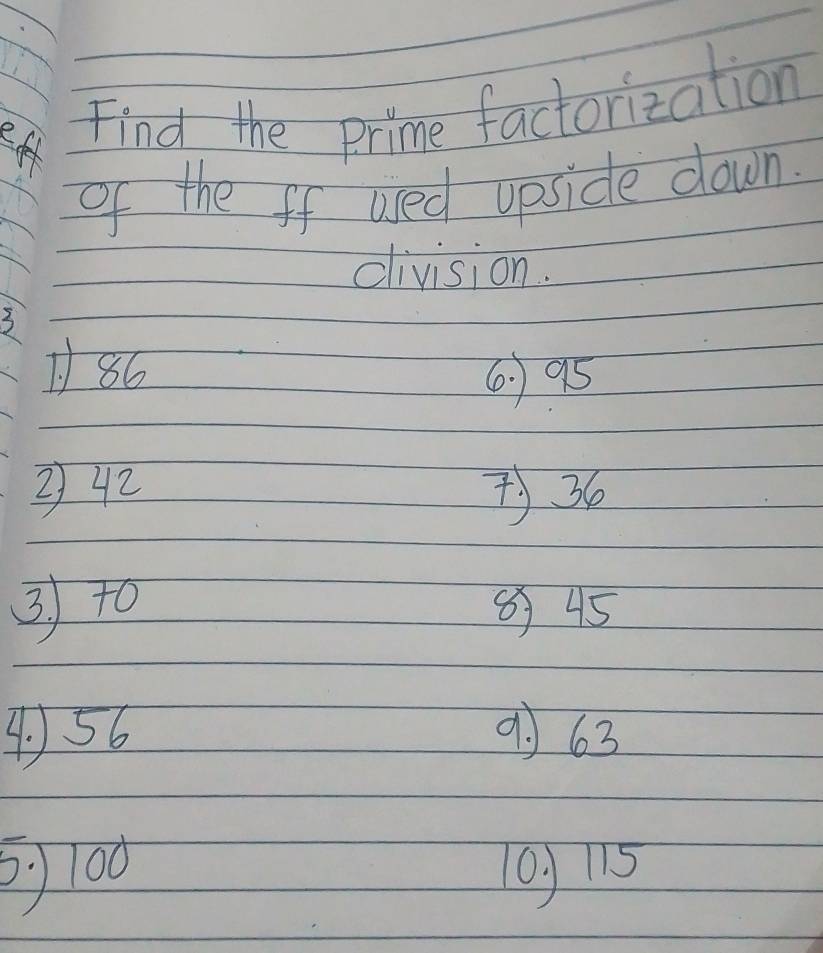 Find the prime factorization
of the ff used upside down.
division.
1.) 86
6.) 95
2) 42
7.) 36
3.) 70
8.) 45
4.) 56
9.) 63
5.) 100
10.) 115
eft
3